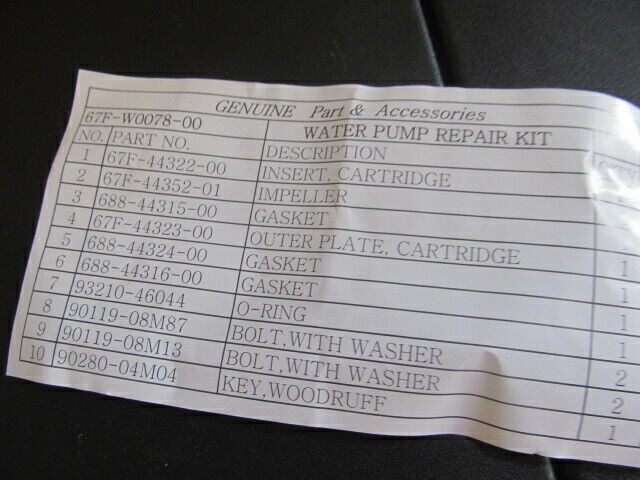 GENUINE Part & Accessories
67F-W0078-00 WATER PUMP REPAIR KIT
NO. PART NO. DESCRIPTION
1 67F-44322-00 INSERT, CARTRIDGE
2 67F-44352-01 IMPELLER
3 688-44315-00 GASKET
4 67F-44323-00 OUTER PLATE, CARTRIDGE 1
5 688-44324-00 GASKET 1
6 688-44316-00 GASKET 1
7 93210-46044 O-RING 1
8 90119-08M87 BOLT,WITH WASHER 2
9 90119-08M13 BOLT,WITH WASHER 2
10 90280-04M04 KEY,WOODRUFF 1